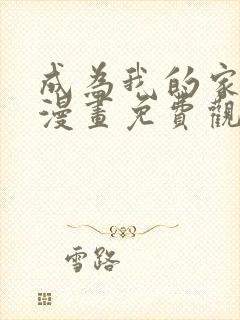 成為我的家
漫畫免費觀
雪路